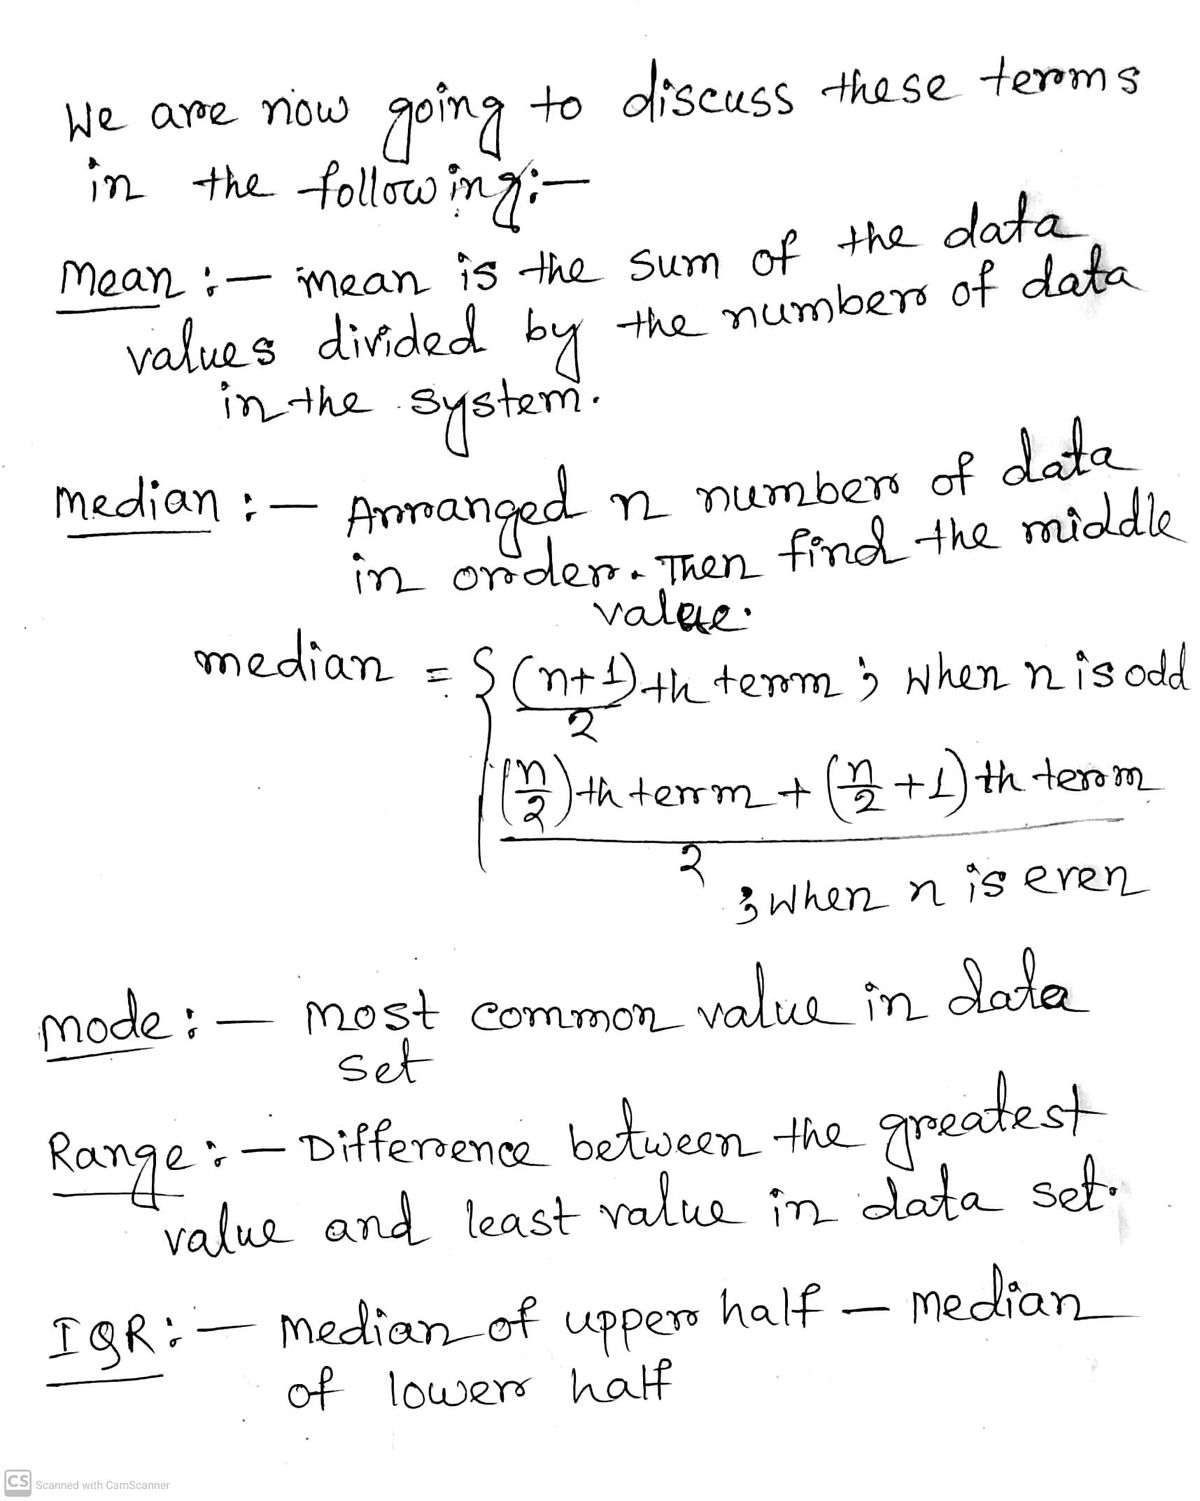 We are now going to discuss these terms
in the following:-
Mean :- mean is the sum of the data
values divided by the number of data
in the system.
Median :- Arranged n number of data
in order. Then find the middle
value.
median = { (n+1)/2 th term ; when n is odd
(n/2)th term + (n/2 +1)th term
2
; when n is even
Mode :- most common value in data
set
Range :- Difference between the greatest
value and least value in data set.
IQR :- Median of upper half - median
of lower half
CS Scanned with CamScanner